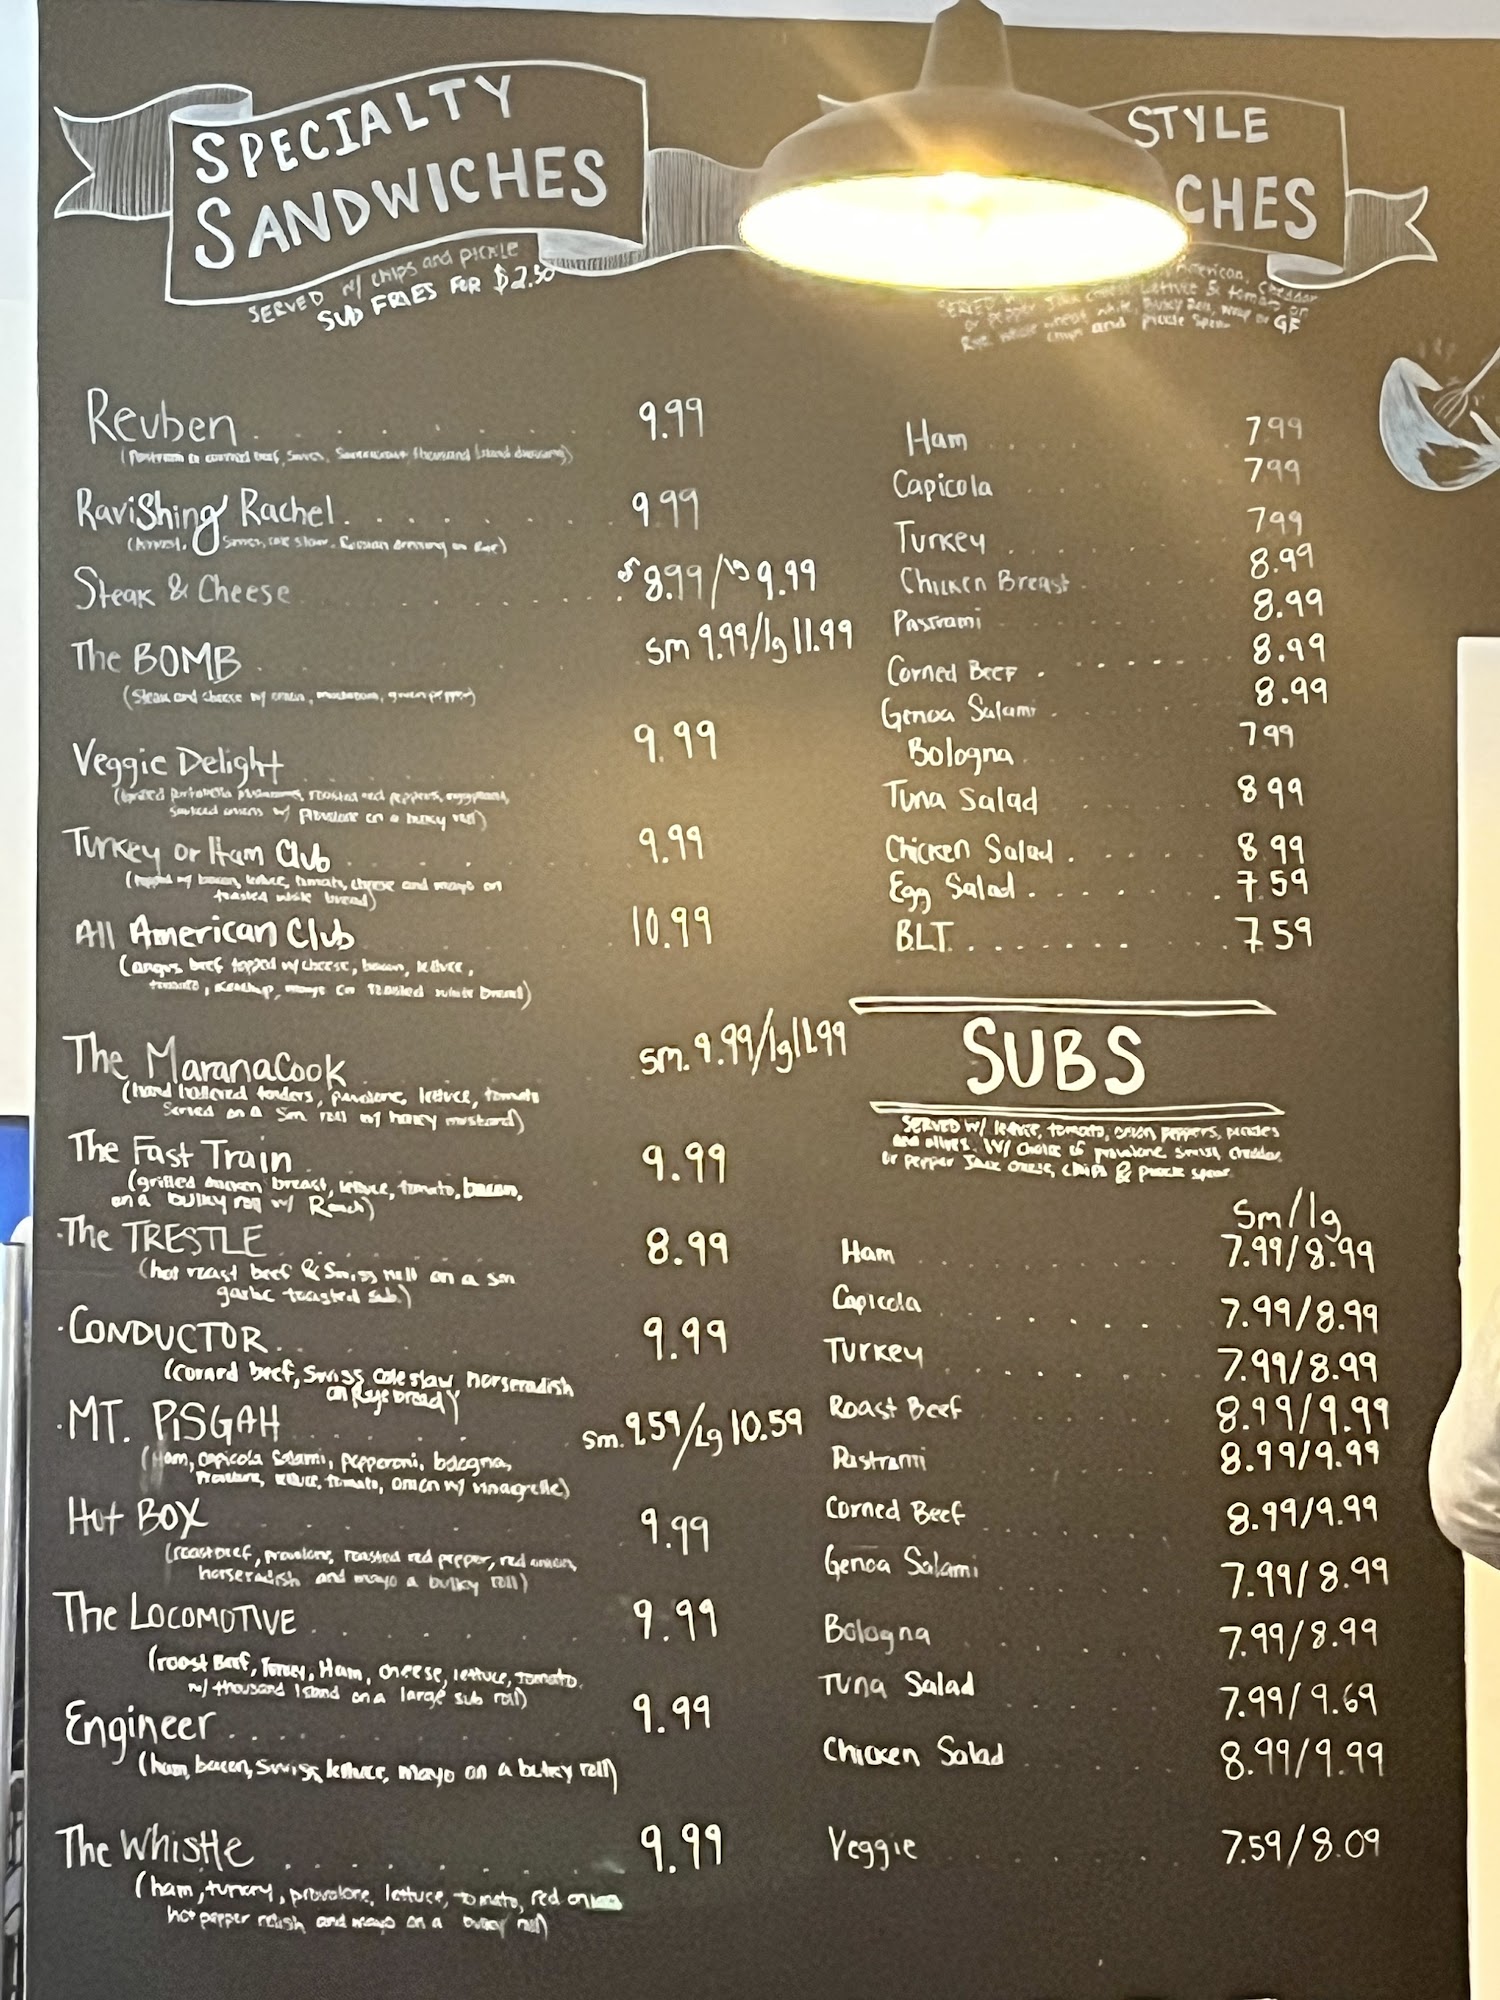 SPECIALTY
SANDWICHES
SERVED W/ CHIPS AND PICKLE
SUB FRIES FOR $2.50
Reuben 9.99
Thousand Island dressing)
Ravishing Rachel 9.99
slaw, Russian dressing on Rye)
Steak & Cheese S 8.99/lg 9.99
The BOMB sm 9.99/lg 11.99
(Steak and cheese w/ onion, mushroom, green pepper)
Veggie Delight 9.99
roasted red peppers, eggplant,
onions w/ provolone on a bulky roll)
Turkey or Ham Club 9.99
(topped w/ bacon, lettuce, tomato, cheese and mayo on
toasted bread)
All American Club 10.99
(angus beef topped w/ cheese, bacon, lettuce,
tomato, ketchup, mayo on toasted white bread)
The MaranaCook sm. 9.99/lg 11.99
(hand battered tenders, provolone, lettuce, tomato
Served on a sm roll w/ honey mustard)
The Fast Train 9.99
(grilled chicken breast, lettuce, tomato, bacon,
on a bulky roll w/ Ranch)
The TRESTLE 8.99
(hot roast beef & Swiss melt on a sm
garlic toasted sub.)
CONDUCTOR 9.99
(corned beef, Swiss, coleslaw, horseradish
on Rye bread)
MT. PISGAH sm. 9.59/Lg 10.59
(Ham, capicola, Salami, pepperoni, bologna,
Provolone, lettuce, tomato, onion w/ vinagrette)
Hot BOX 9.99
(roast beef, provolone, roasted red pepper, red onion,
horseradish and mayo a bulky roll)
The LOCOMOTIVE 9.99
(roast Beef, Turkey, Ham, cheese, lettuce, Tomato.
w/ thousand Island on a large sub roll)
Engineer 9.99
(ham, bacon, Swiss, lettuce, mayo on a bulky roll)
The Whistle 9.99
(ham, turkey, provolone, lettuce, tomato, red onion
hot pepper relish and mayo on a bulky roll)
STYLE
CHES
American, Cheddar
Lettuce & tomato on
GF
chips and pickle spear
Ham 7.99
Capicola 7.99
Turkey 7.99
Chicken Breast 8.99
Pastrami 8.99
Corned Beef 8.99
Genoa Salami 8.99
Bologna 7.99
Tuna Salad 8.99
Chicken Salad 8.99
Egg Salad 7.59
B.L.T. 7.59
SUBS
SERVED W/ lettuce, tomato, onion peppers, pickles
and olives. W/ choice of provolone, swiss, cheddar
or pepper Jack cheese, chips & pickle spear
Sm/lg
Ham 7.99/8.99
Capicola 7.99/8.99
Turkey 7.99/8.99
Roast Beef 8.99/9.99
Pastrami 8.99/9.99
Corned Beef 8.99/9.99
Genoa Salami 7.99/8.99
Bologna 7.99/8.99
Tuna Salad 7.99/9.69
Chicken Salad 8.99/9.99
Veggie 7.59/8.09